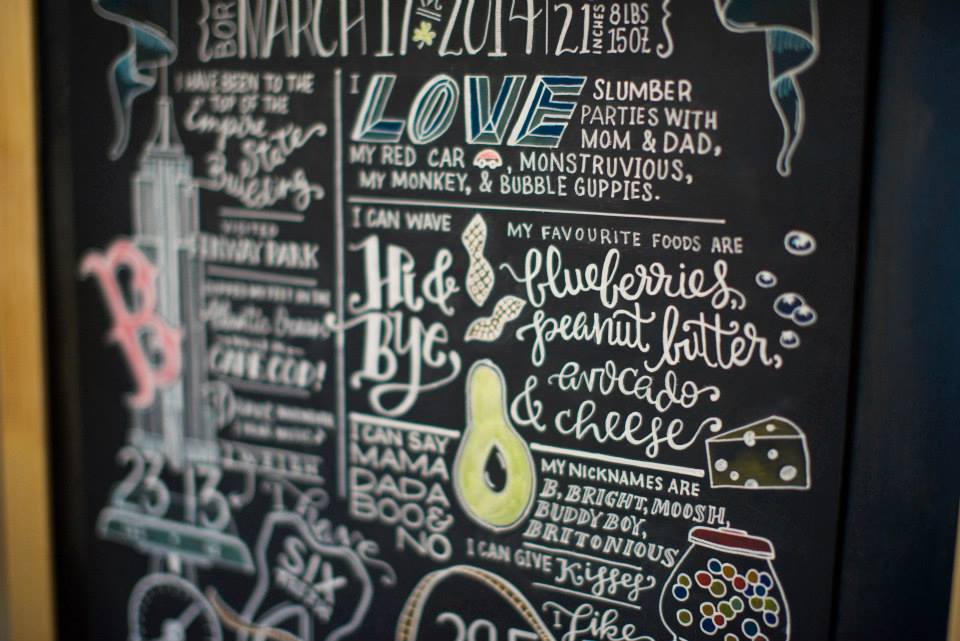 BOR
MARCH 17 2014
21 INCHES
8 LBS
15 OZ
I HAVE BEEN TO THE
TOP OF THE
Empire
State
Building
VISITED
FENWAY PARK
Atlantic Ocean
CAPE COD!
B
23 13
I have
SIX
TEETH
I LOVE SLUMBER
PARTIES WITH
MOM & DAD,
MY RED CAR, MONSTRUVIOUS,
MY MONKEY, & BUBBLE GUPPIES.
I CAN WAVE
Hi &
Bye,
MY FAVOURITE FOODS ARE
blueberries,
peanut butter,
avocado
& cheese
I CAN SAY
MAMA
DADA
BOO &
NO
MY NICKNAMES ARE
B, BRIGHT, MOOSH,
BUDDY BOY,
BRITONIOUS
I CAN GIVE Kisses
I Like